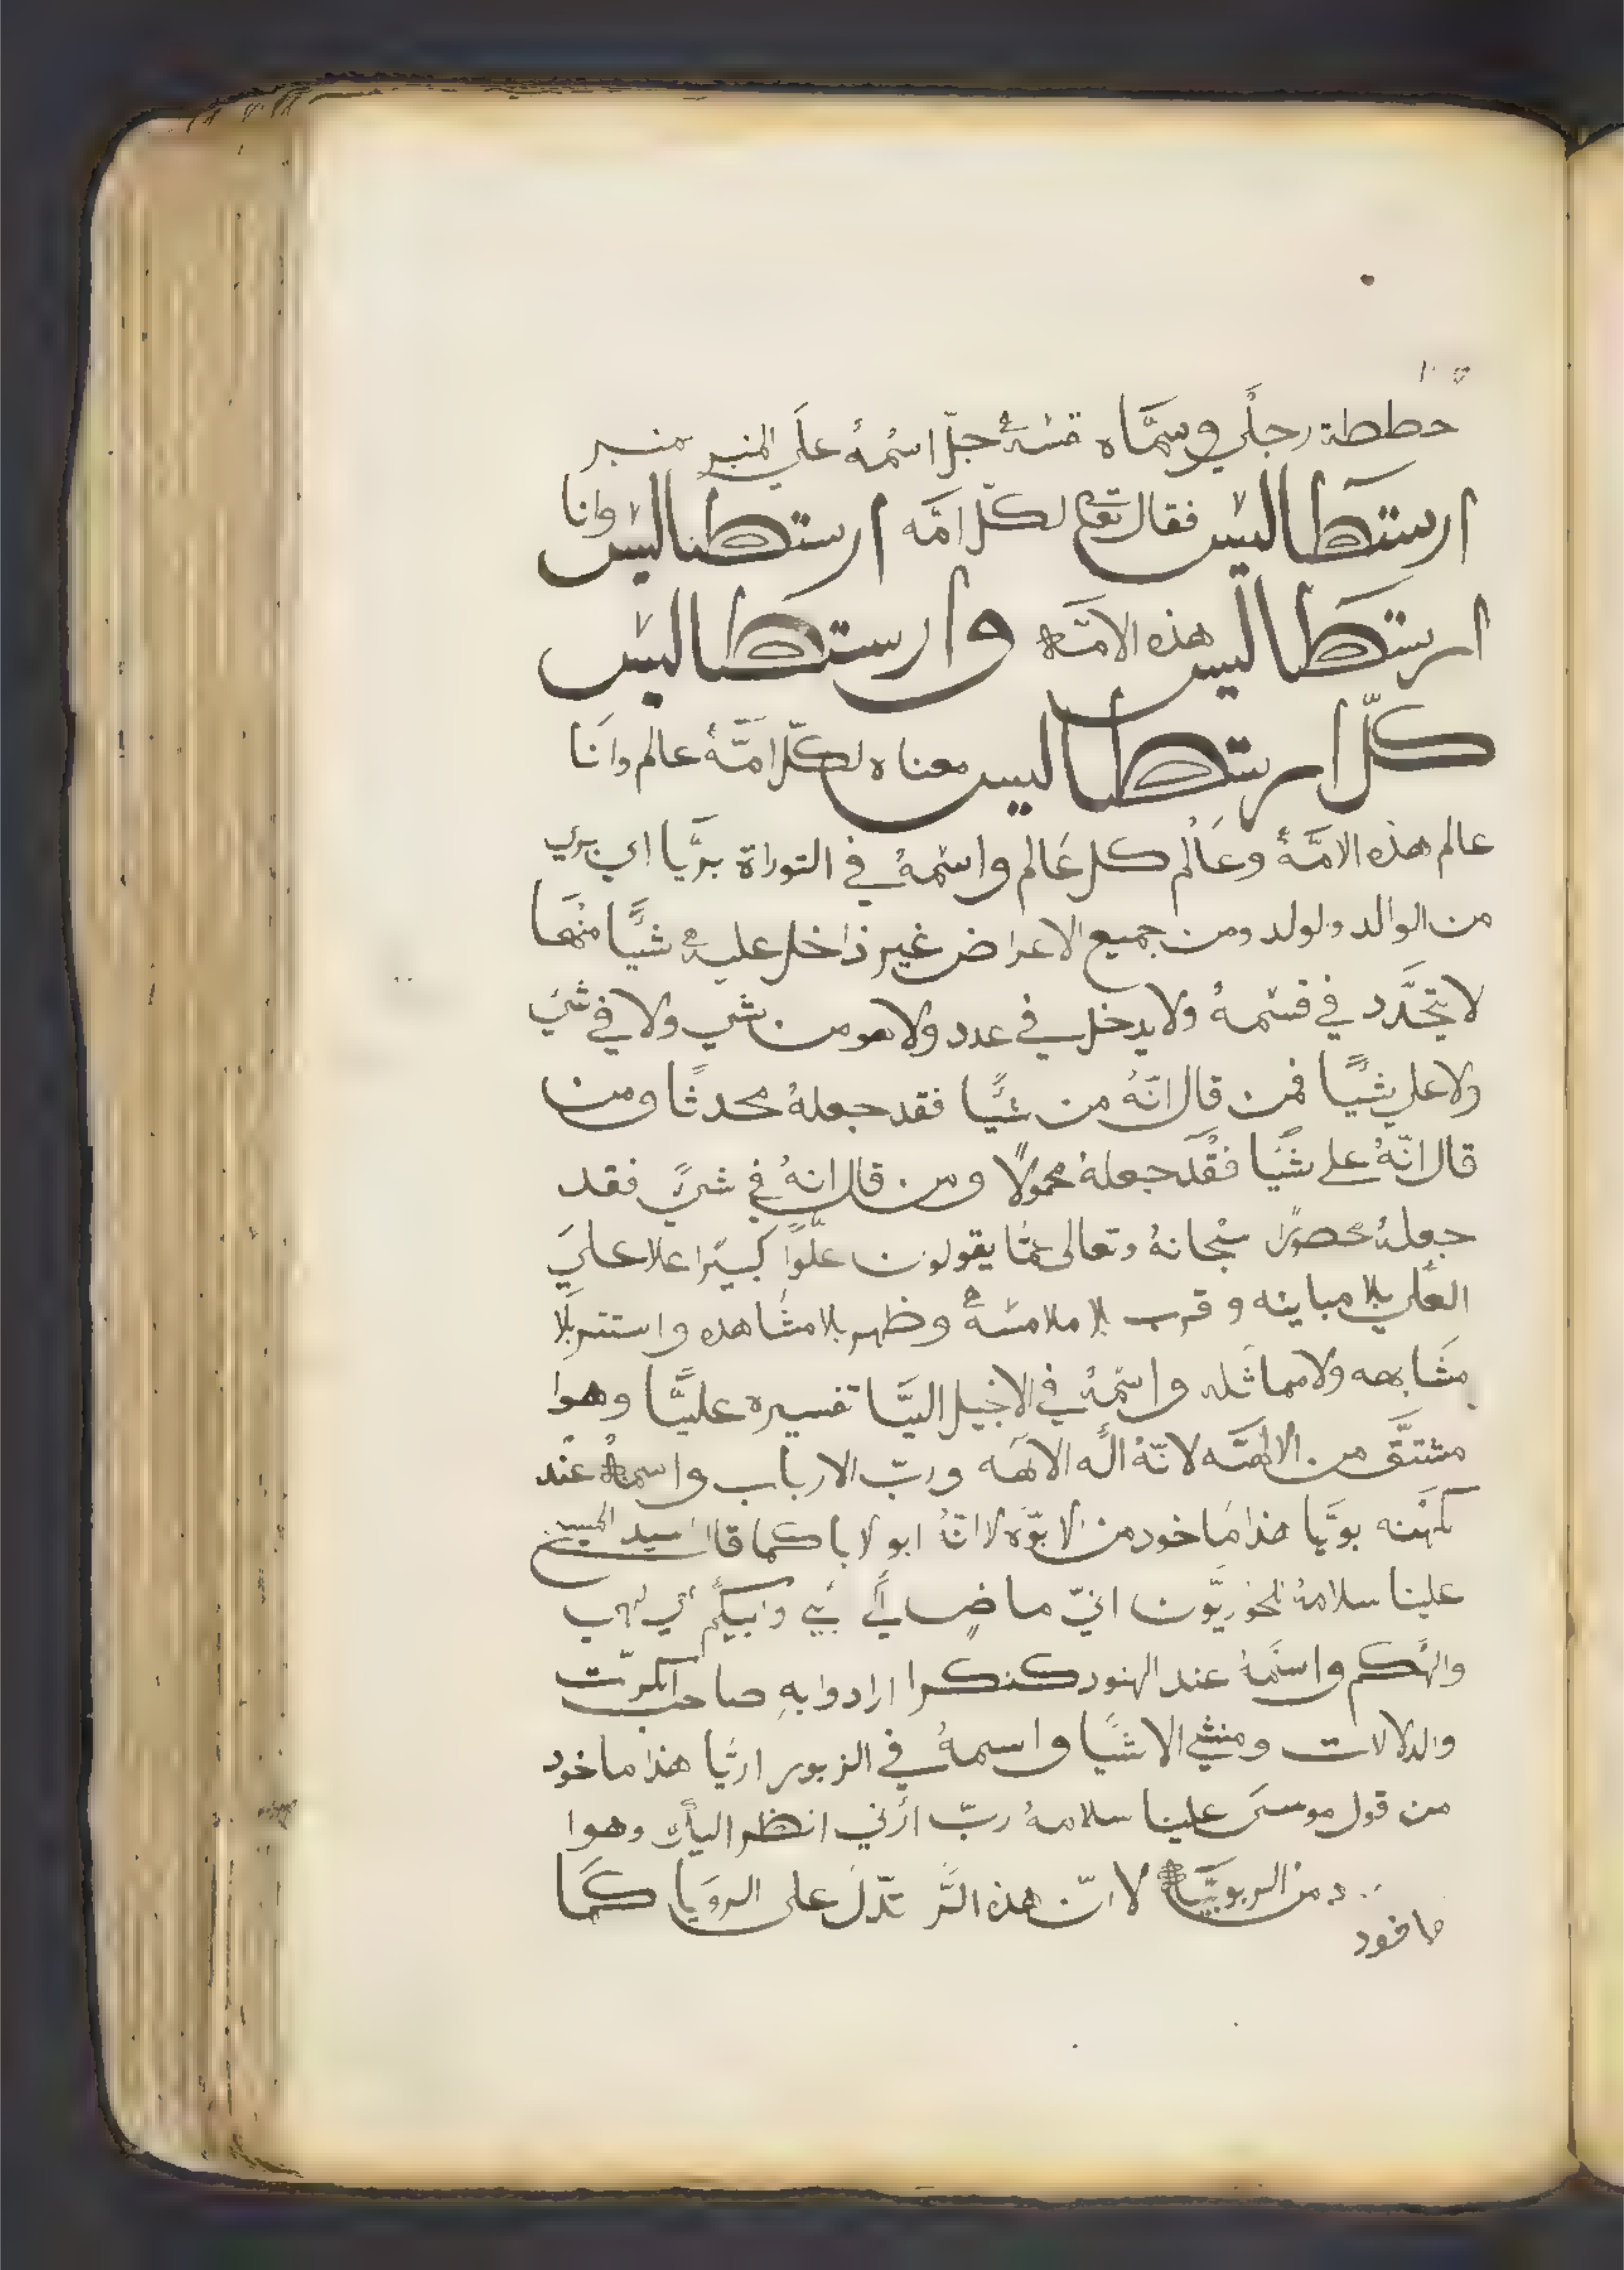 حططة رجلي وسمَّاه قسَّه جلّ اسمُهُ علَي المنبر منبر
ارستطاليس فقال تع لكلّ امَّه ارستطاليس وانا
ارستطاليس هذه الامَّه وارستطاليس
كلّ ارستطاليس معناه لكلّ امَّهُ عالم وانَا
عالم هذه الامَّهُ وعَالم كل عَالم واسمهُ في التوراة بريَّا اي بري
من الوالد ولولد ومن جميع الاعراض غير داخل عليه شيًّا منْهَا
لا يتحَدَّد في قسْمهُ ولا يدخل في عدد ولا هو من شي ولا في شي
ولا علي شيًّا فمن قال انّهُ من شيًّا فقد جعلهُ محدثًا ومن
قال انّهُ علي شيًّا فقَد جعلهُ محمولًا ومن قال انهُ في شيءً فقد
جعلهُ محصورًا سُبحانهُ وتعالى عمّا يقولون علُّوًا كبيرًا علا علَي
العلي بلا مباينه وقرب بلا ملامسَه وظهر بلا مشَاهده واستتر بلَا
مشَابهه ولا مماثله واسمهُ في الانجيل اليَّا تفسيره عليًّا وهوا
مشتقَّ من الالهيَّه لانّهُ الَه الالهَه وربّ الارباب واسمهُ عنْد
كهَنه بويَّا هذا مَاخود من لابوّه لاانّهُ ابو لابا كما قال اسيد المسيح
علينا سلامهُ للحوريَّون انيّ ماضٍ الَي ابي وابيكُم الي لهي
والهَكم واسمهُ عند الهنود كنكرا ارادوا بهِ صاحب الكرّت
والدلالات ومنشي الاشيًّا واسمهُ في الزبور اريَّا هذا ماخود
من قول موسَى علينا سلامهُ ربّ ارُني انظر اليك وهوا
ماخود من الربوبيَّا لا انّ هذه الرَّ تدّل على الرويَا كمَا